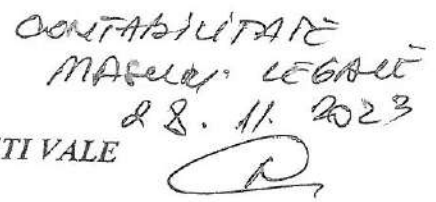 CONTABILITATE
MASURI LEGALE
28. 11. 2023
TI VALE